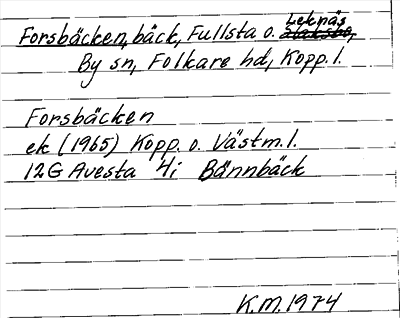 Forsbäcken, bäck, Fullsta o. Leknäs
By sn, Folkare hd, Kopp. l.
Forsbäcken
ek (1965) Kopp. o. Västm. l.
12G Avesta 4i Bännbäck
K.M. 1974